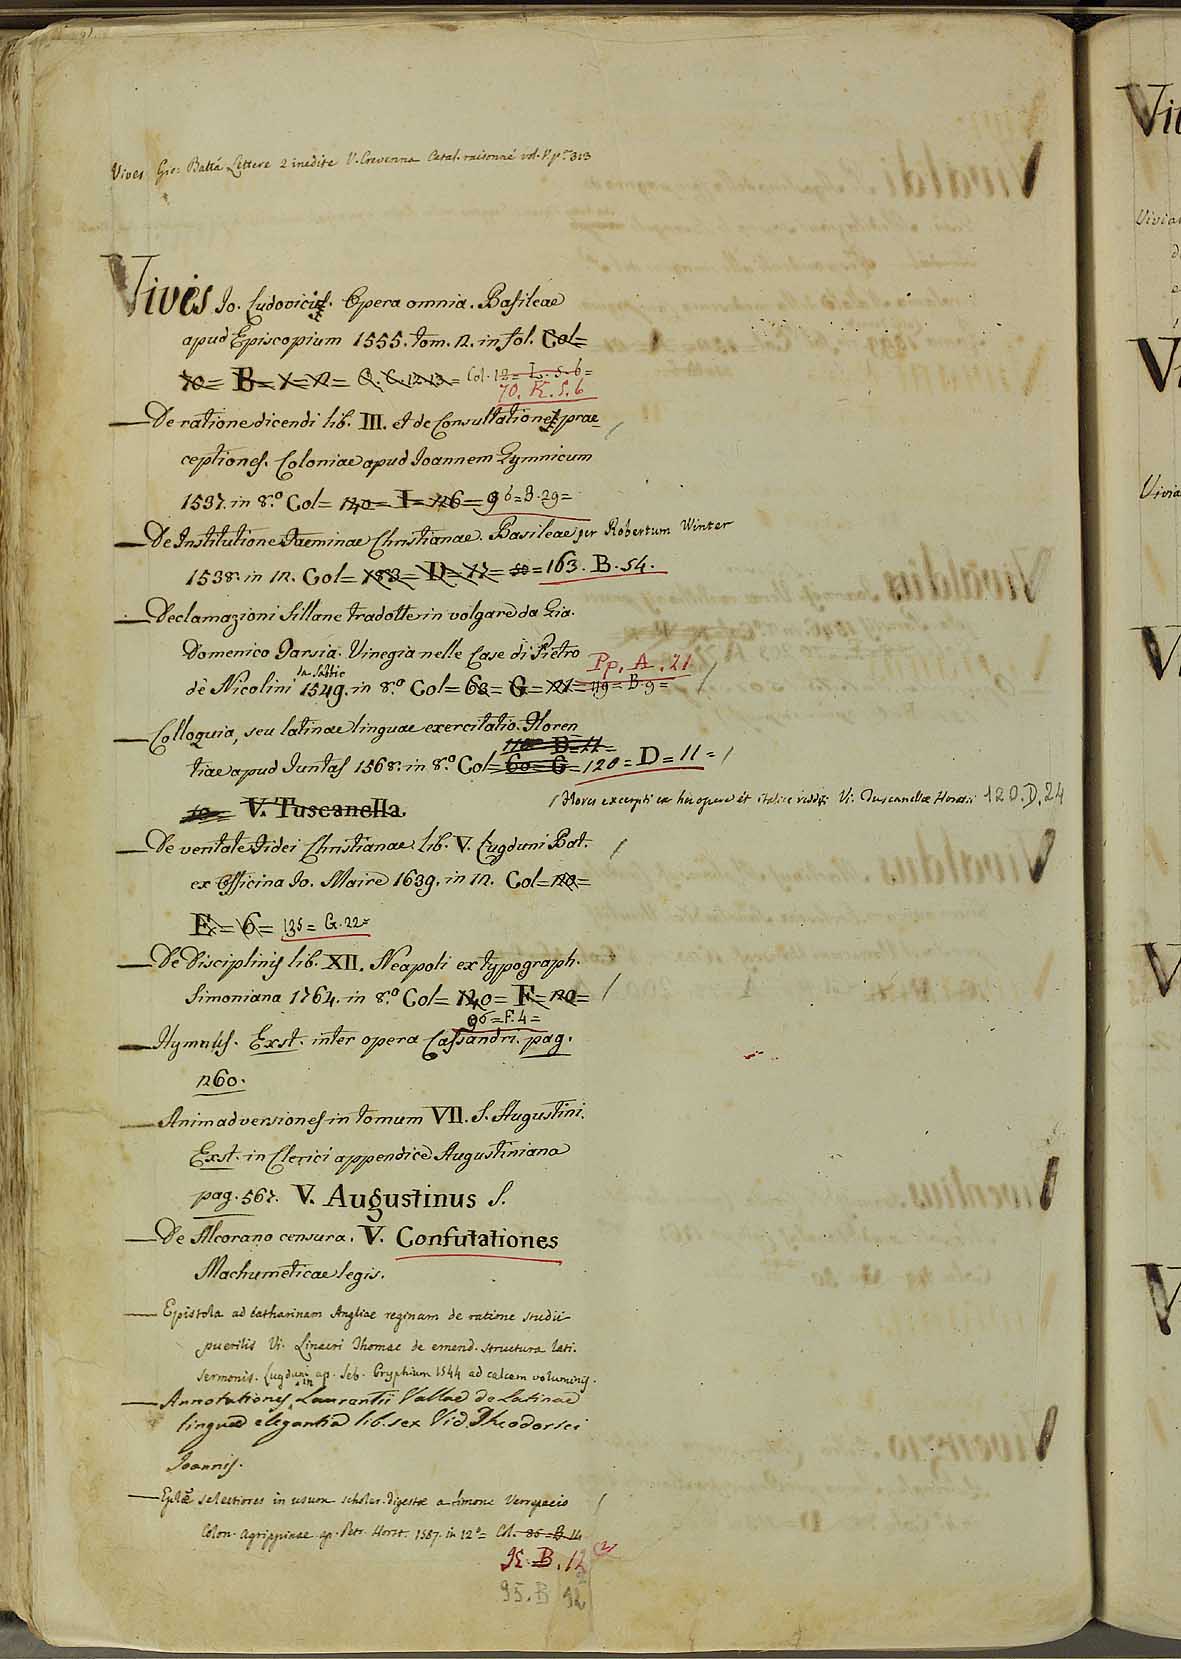 Vives Gio: Batta Lettere 2 inedite V. Crevenna Catal. raisonné vol. V pag. 313
Vives Jo. Ludovici Opera omnia. Basileae
apud Episcopium 1555. tom. 2. in fol. Col=
70= B= 1= 2= Col. 12= L. 5. 6=
70. K. 5. 6
— De ratione dicendi lib. III. et de Consultatione prae=
ceptiones. Coloniae apud Joannem Gymnicum
1537. in 8.º Col= 140= I= 126= 96=B.29=
— De Institutione Faeminae Christianae. Basileae per Robertum Winter
1538. in 12. Col= 183= D= 17= 163. B. 54.
— Declamazioni Sillane tradotte in volgare da Gia.
Domenico Tarsia. Vinegia nelle Case di Pietro
Pp. A. 21
dè Nicolini da Sabbio 1549. in 8.º Col= 68= G= 121= 119= B. 9=
— Colloquia, seu latinae linguae exercitatio. Floren
110= B=11=
tiae apud Juntas 1568. in 8.º Col= 60= G= 120= D= 11=
Flores excerpti ex hoc opere et italice redditi Vi: Tuscanella Horatii 120. D. 24
V. Tuscanella.
— De veritate Fidei Christianae lib. V. Lugduni Bat.
ex Officina Jo. Maire 1639. in 12. Col= 120=
E= 6= 135= G. 22=
— De Disciplinis lib. XII. Neapoli ex typograph.
Simoniana 1764. in 8.º Col= 120= F= 120=
96=F. 4=
— Hymnus. Exst. inter opera Cassandri. pag.
1260.
— Animadversiones in tomum VII. S. Augustini.
Exst. in Clerici appendice Augustiniana
pag. 567. V. Augustinus S.
— De Alcorano censura. V. Confutationes
Machumeticae legis.
— Epistola ad Catharinam Angliae reginam de ratione studii
puerilis Vi. Linacri Thomae de emend. structura lati.
sermonis. Lugduni ap. Seb. Gryphium 1544 ad calcem voluminis.
— Annotationes in Laurentii Vallae de Latinae
linguae elegantia lib. sex Vid. Theodorici
Joannis.
— Eplae selectiores in usum scholar. digestae a Simone Verrepaeo
Colon. Agrippinae ap. Petr. Horst. 1587. in 12º= Col. 86=B. 14
95. B. 12
95. B 12